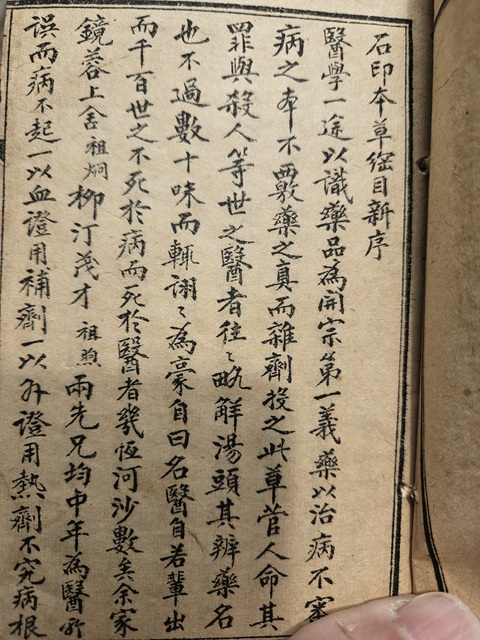 石印本草綱目新序
醫學一途以識藥品為開宗第一義藥以治病不審
病之本不覈藥之真而雜劑投之此草菅人命其
罪與殺人等世之醫者往々略解湯頭其辨藥名
也不過數十味而輒詡々為豪自曰名醫自若輩出
而千百世之不死於病而死於醫者幾恆河沙數矣余家
鏡蓉上舍祖炯柳汀茂才祖煦兩先兄均中年為醫所
誤而病不起一以血證用補劑一以外證用熱劑不究病根